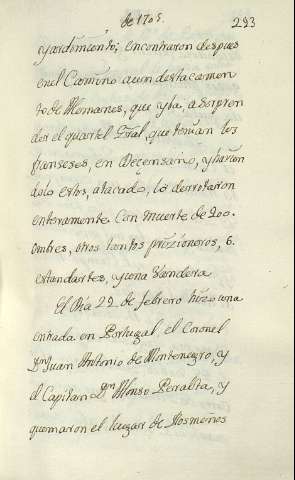 de 1705. 293
y ardimiento; encontraron despues
en el Camino a un destacamen
to de Alemanes, que yba, a sorpren
der el quartel Gral, que tenian los
franseses, en Deçensano, y havien
dolo estos, atacado, lo derrotaron
enteramente con muerte de 200.
ombres, otros tantos prizioneros, 6.
estandartes, y una Vandera
El Dia 22 de febrero hizo una
entrada en Portugal, el Coronel
Dn Juan Antonio de Montenegro, y
el Capitan Dn Alonso Peralta, y
quemaron el lugar de Dosmeños